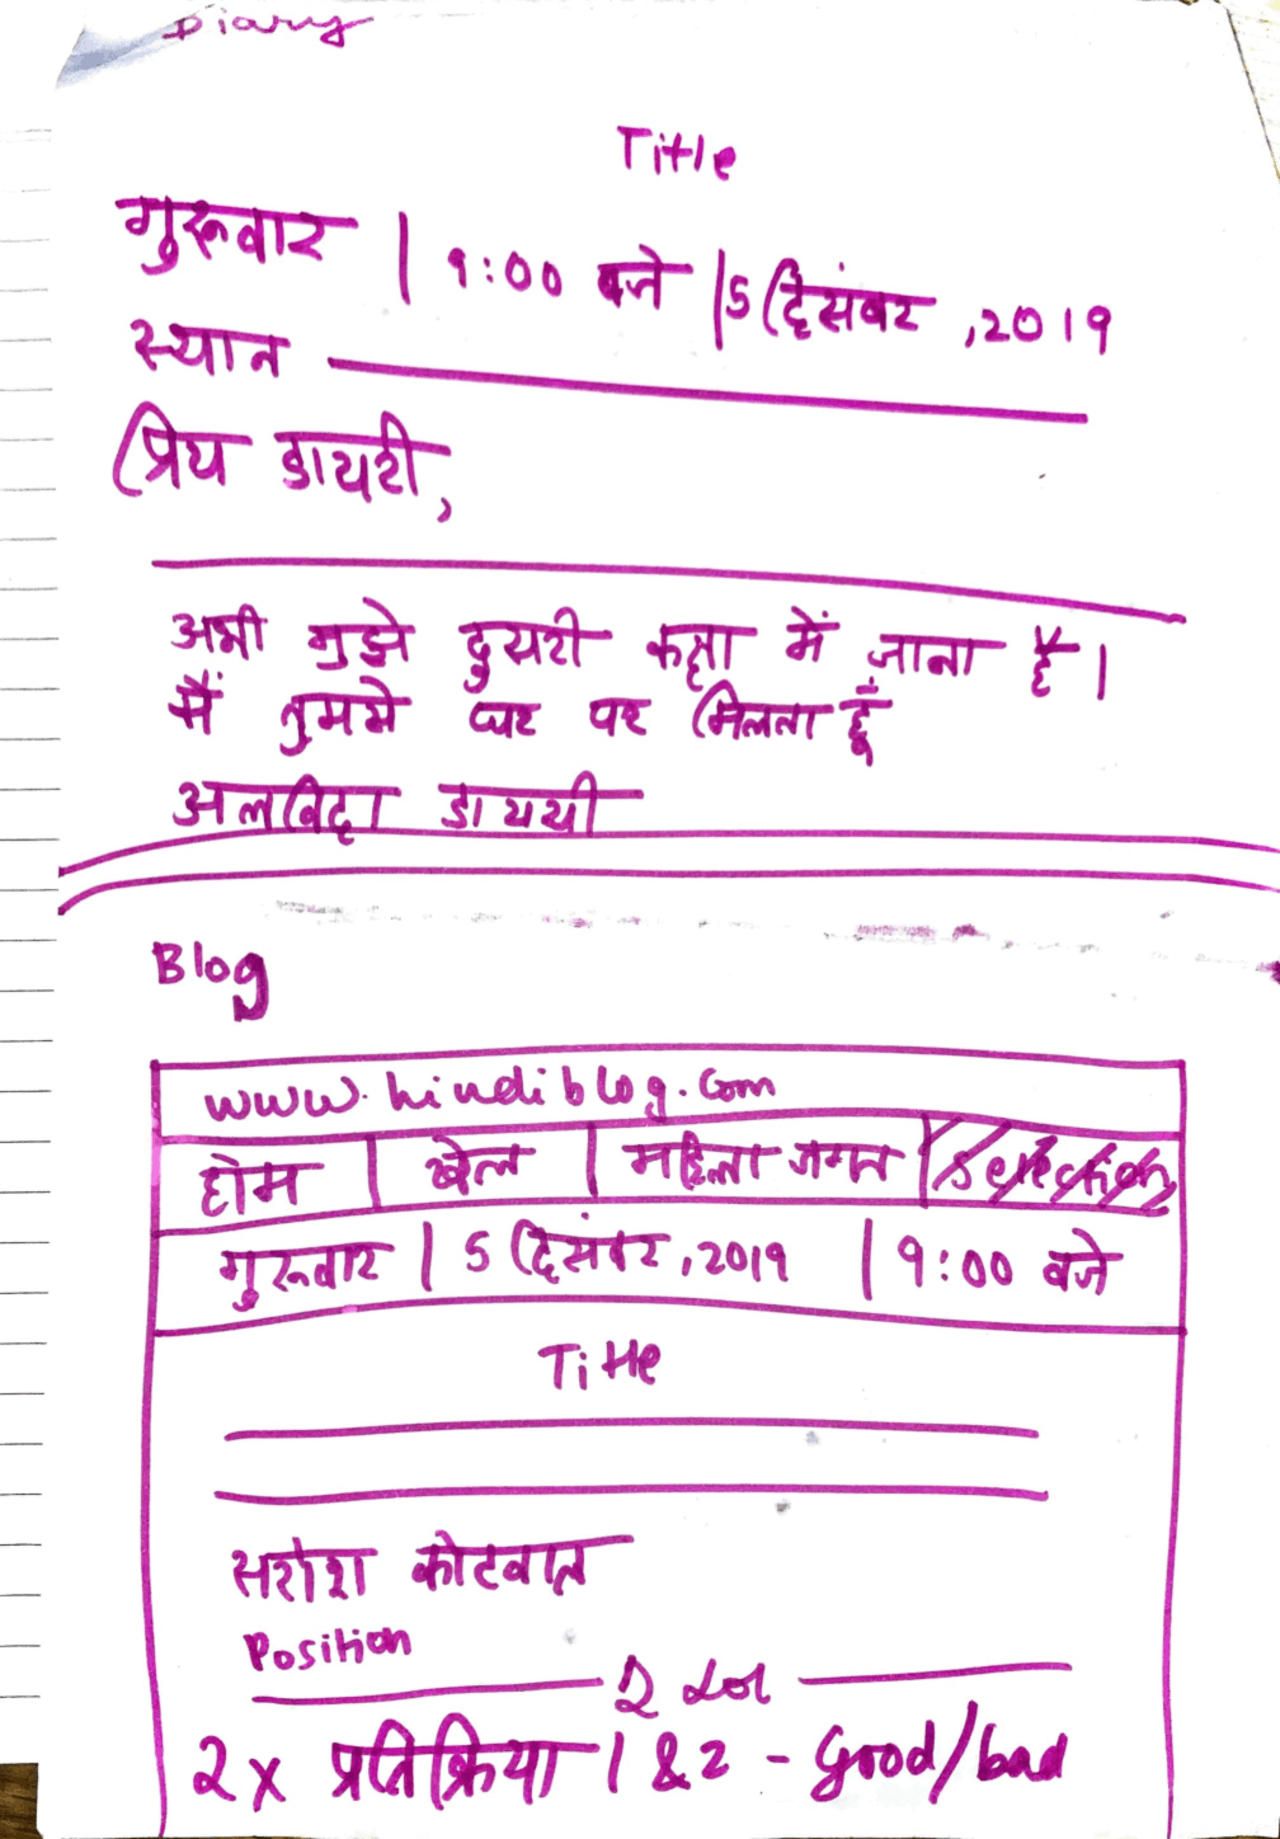 Diary
Title
गुरूवार | 9:00 बजे | 5 दिसंबर, 2019
स्थान
प्रिय डायरी,
अभी मुझे दुसरी कक्षा में जाना है।
मैं तुमसे घर पर मिलता हूँ
अलविदा डायरी
Blog
www.hindiblog.com
होम | खेल | महिला जगत | Selection
गुरूवार | 5 दिसंबर, 2019 | 9:00 बजे
Title
कोटवाल
Position
2x प्रतिक्रिया 1 & 2 - Good/bad